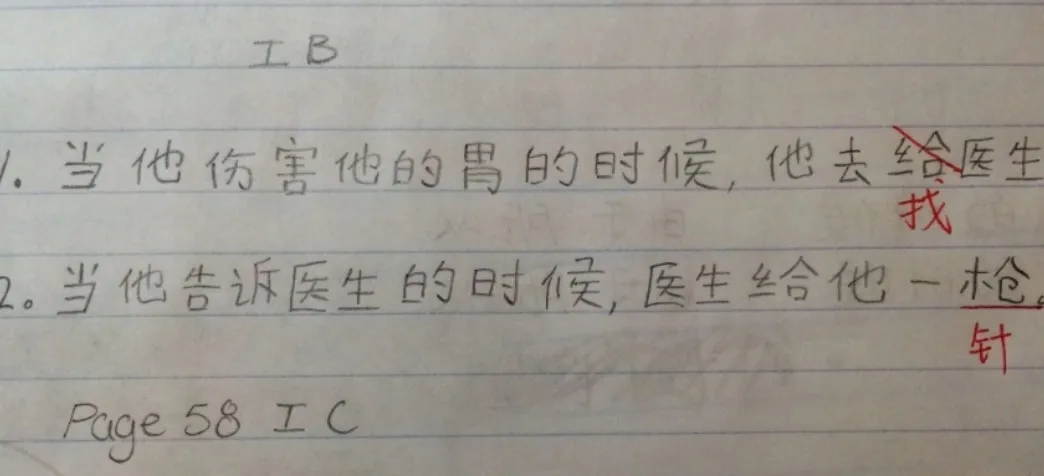 I B
1. 当他伤害他的胃的时候, 他去给医生
找
2. 当他告诉医生的时候, 医生给他一枪。
针
Page 58 I C